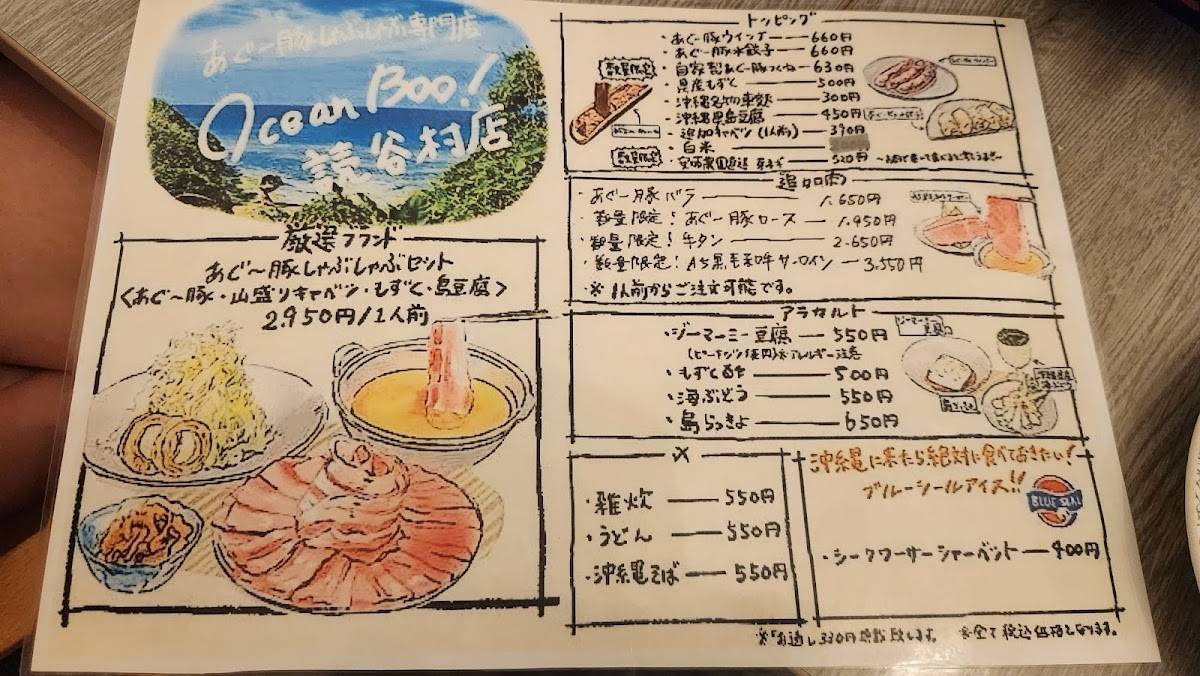 あぐ〜豚しゃぶしゃぶ専門店
Ocean Boo!
読谷村店
厳選ブランド
あぐ〜豚しゃぶしゃぶセット
〈あぐ〜豚・山盛りキャベツ・もずく・島豆腐〉
2,950円/1人前
トッピング
・あぐ〜豚ウインナー 660円
・あぐ〜豚水餃子 660円
数量限定 ・自家製あぐ〜豚つくね 630円
・県産もずく 500円
・沖縄名物車麩 300円
・沖縄県島豆腐 450円
・追加キャベツ(1人前) 390円
・白米
数量限定 520円
追加肉
・あぐ〜豚バラ 1,650円
・数量限定!あぐ〜豚ロース 1,950円
・数量限定!牛タン 2,650円
・数量限定!A5黒毛和牛サーロイン 3,550円
・※1人前からご注文可能です。
アラカルト
・ジーマーミー豆腐 550円
(ピーナッツ使用)※アレルギー注意
・もずく酢 500円
・海ぶどう 550円
・島らっきょ 650円
ジーマーミー豆腐
島らっきょ
〆
・雑炊 550円
・うどん 550円
・沖縄そば 550円
沖縄に来たら絶対に食べておきたい!
ブルーシールアイス!!
BLUE SEAL
・シークワーサーシャーベット 400円
※お通し330円頂戴致します。 ※全て税込価格となります。